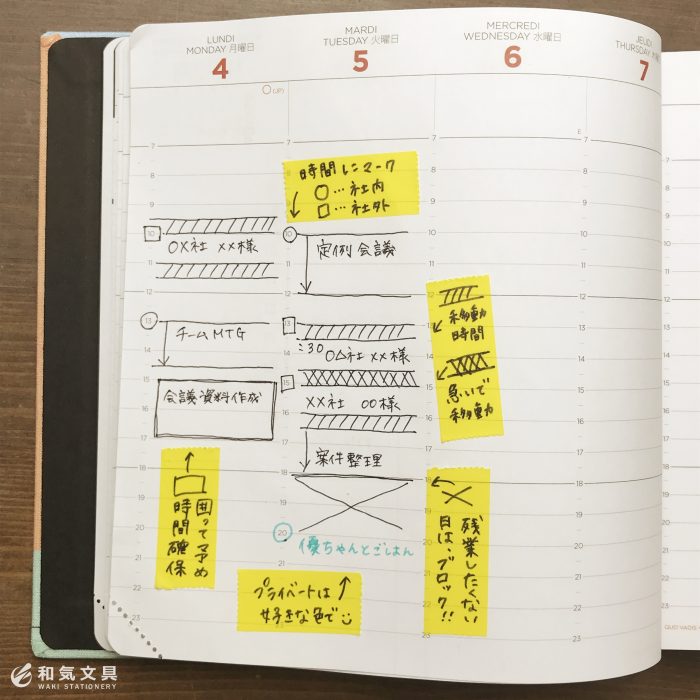 LUNDI
MONDAY 月曜日
4
MARDI
TUESDAY 火曜日
5
MERCREDI
WEDNESDAY 水曜日
6
JEUDI
THURSDAY
7
(JP)
時間にマーク
○…社内
□…社外
10
○×社 ××様
13
チームMTG
会議資料作成
↑
囲って予め
時間確保
10
定例会議
13
:30 ○△社 ××様
15
××社 ○○様
案件整理
20
優ちゃんとごはん
プライベートは
好きな色で
移動
時間
急いで
移動
残業したくない
日は、ブロック!!
QUO VADIS
和気文具
WAKI STATIONERY